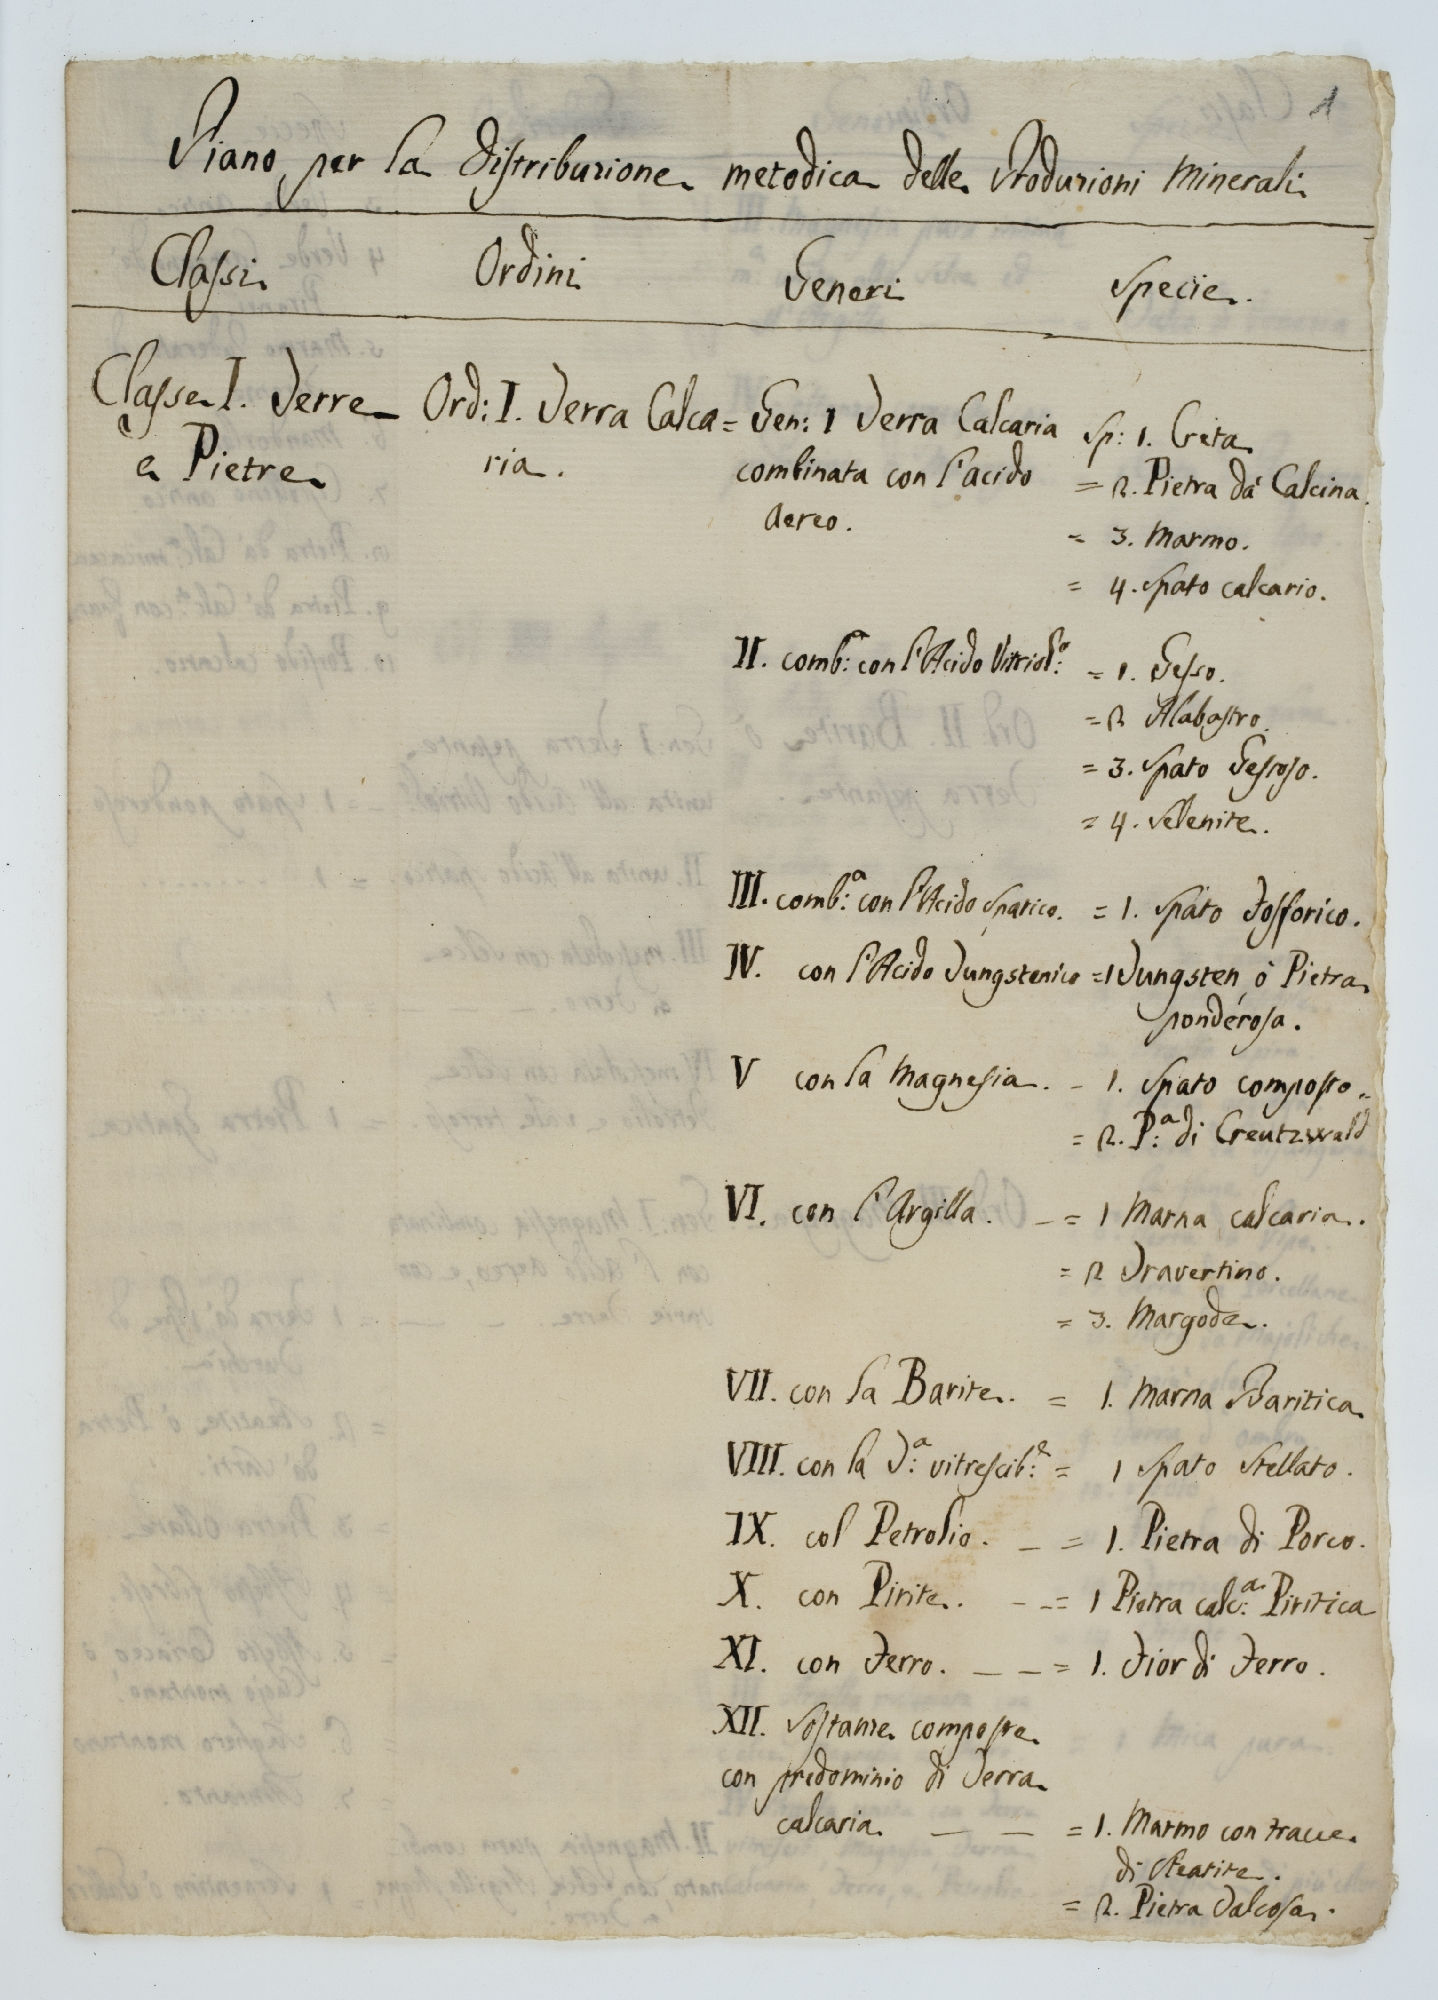 1
Piano per la distribuzione metodica delle Produzioni Minerali
Classi Ordini Generi Specie.
Classe I. Terre Ord: I. Terra Calca= Gen: 1 Terra Calcaria Sp: 1. Creta
e Pietre ria. combinata con l'acido = 2. Pietra da Calcina.
aereo. = 3. Marmo.
= 4. Spato calcario.
II. comb:ª con l'Acido Vitriol:º = 1. Gesso.
= 2 Alabastro.
= 3. Spato Gessoso.
= 4. Selenite.
III. comb:ª con l'Acido Spatico. = 1. Spato Fosforico.
IV. con l'Acido Tungstenico =1 Tungsten, ò Pietra
ponderosa.
V con la Magnesia. - 1. Spato composto.
= 2. P:ª di Creutzwald
VI. con l'Argilla. - = 1 Marna calcaria.
= 2 Travertino.
= 3. Margode.
VII. con la Barite. = 1. Marna Baritica
VIII. con la T:ª vitrescib:e = 1 Spato Stellato.
IX. col Petrolio. - = 1. Pietra di Porco.
X. con Pirite. - - = 1 Pietra calc:ª Piritica
XI. con Ferro. - - = 1. Fior di Ferro.
XII. Sostanze composte
con predominio di Terra
calcaria. - - = 1. Marmo con tracce
di Steatite.
= 2. Pietra Talcosa.